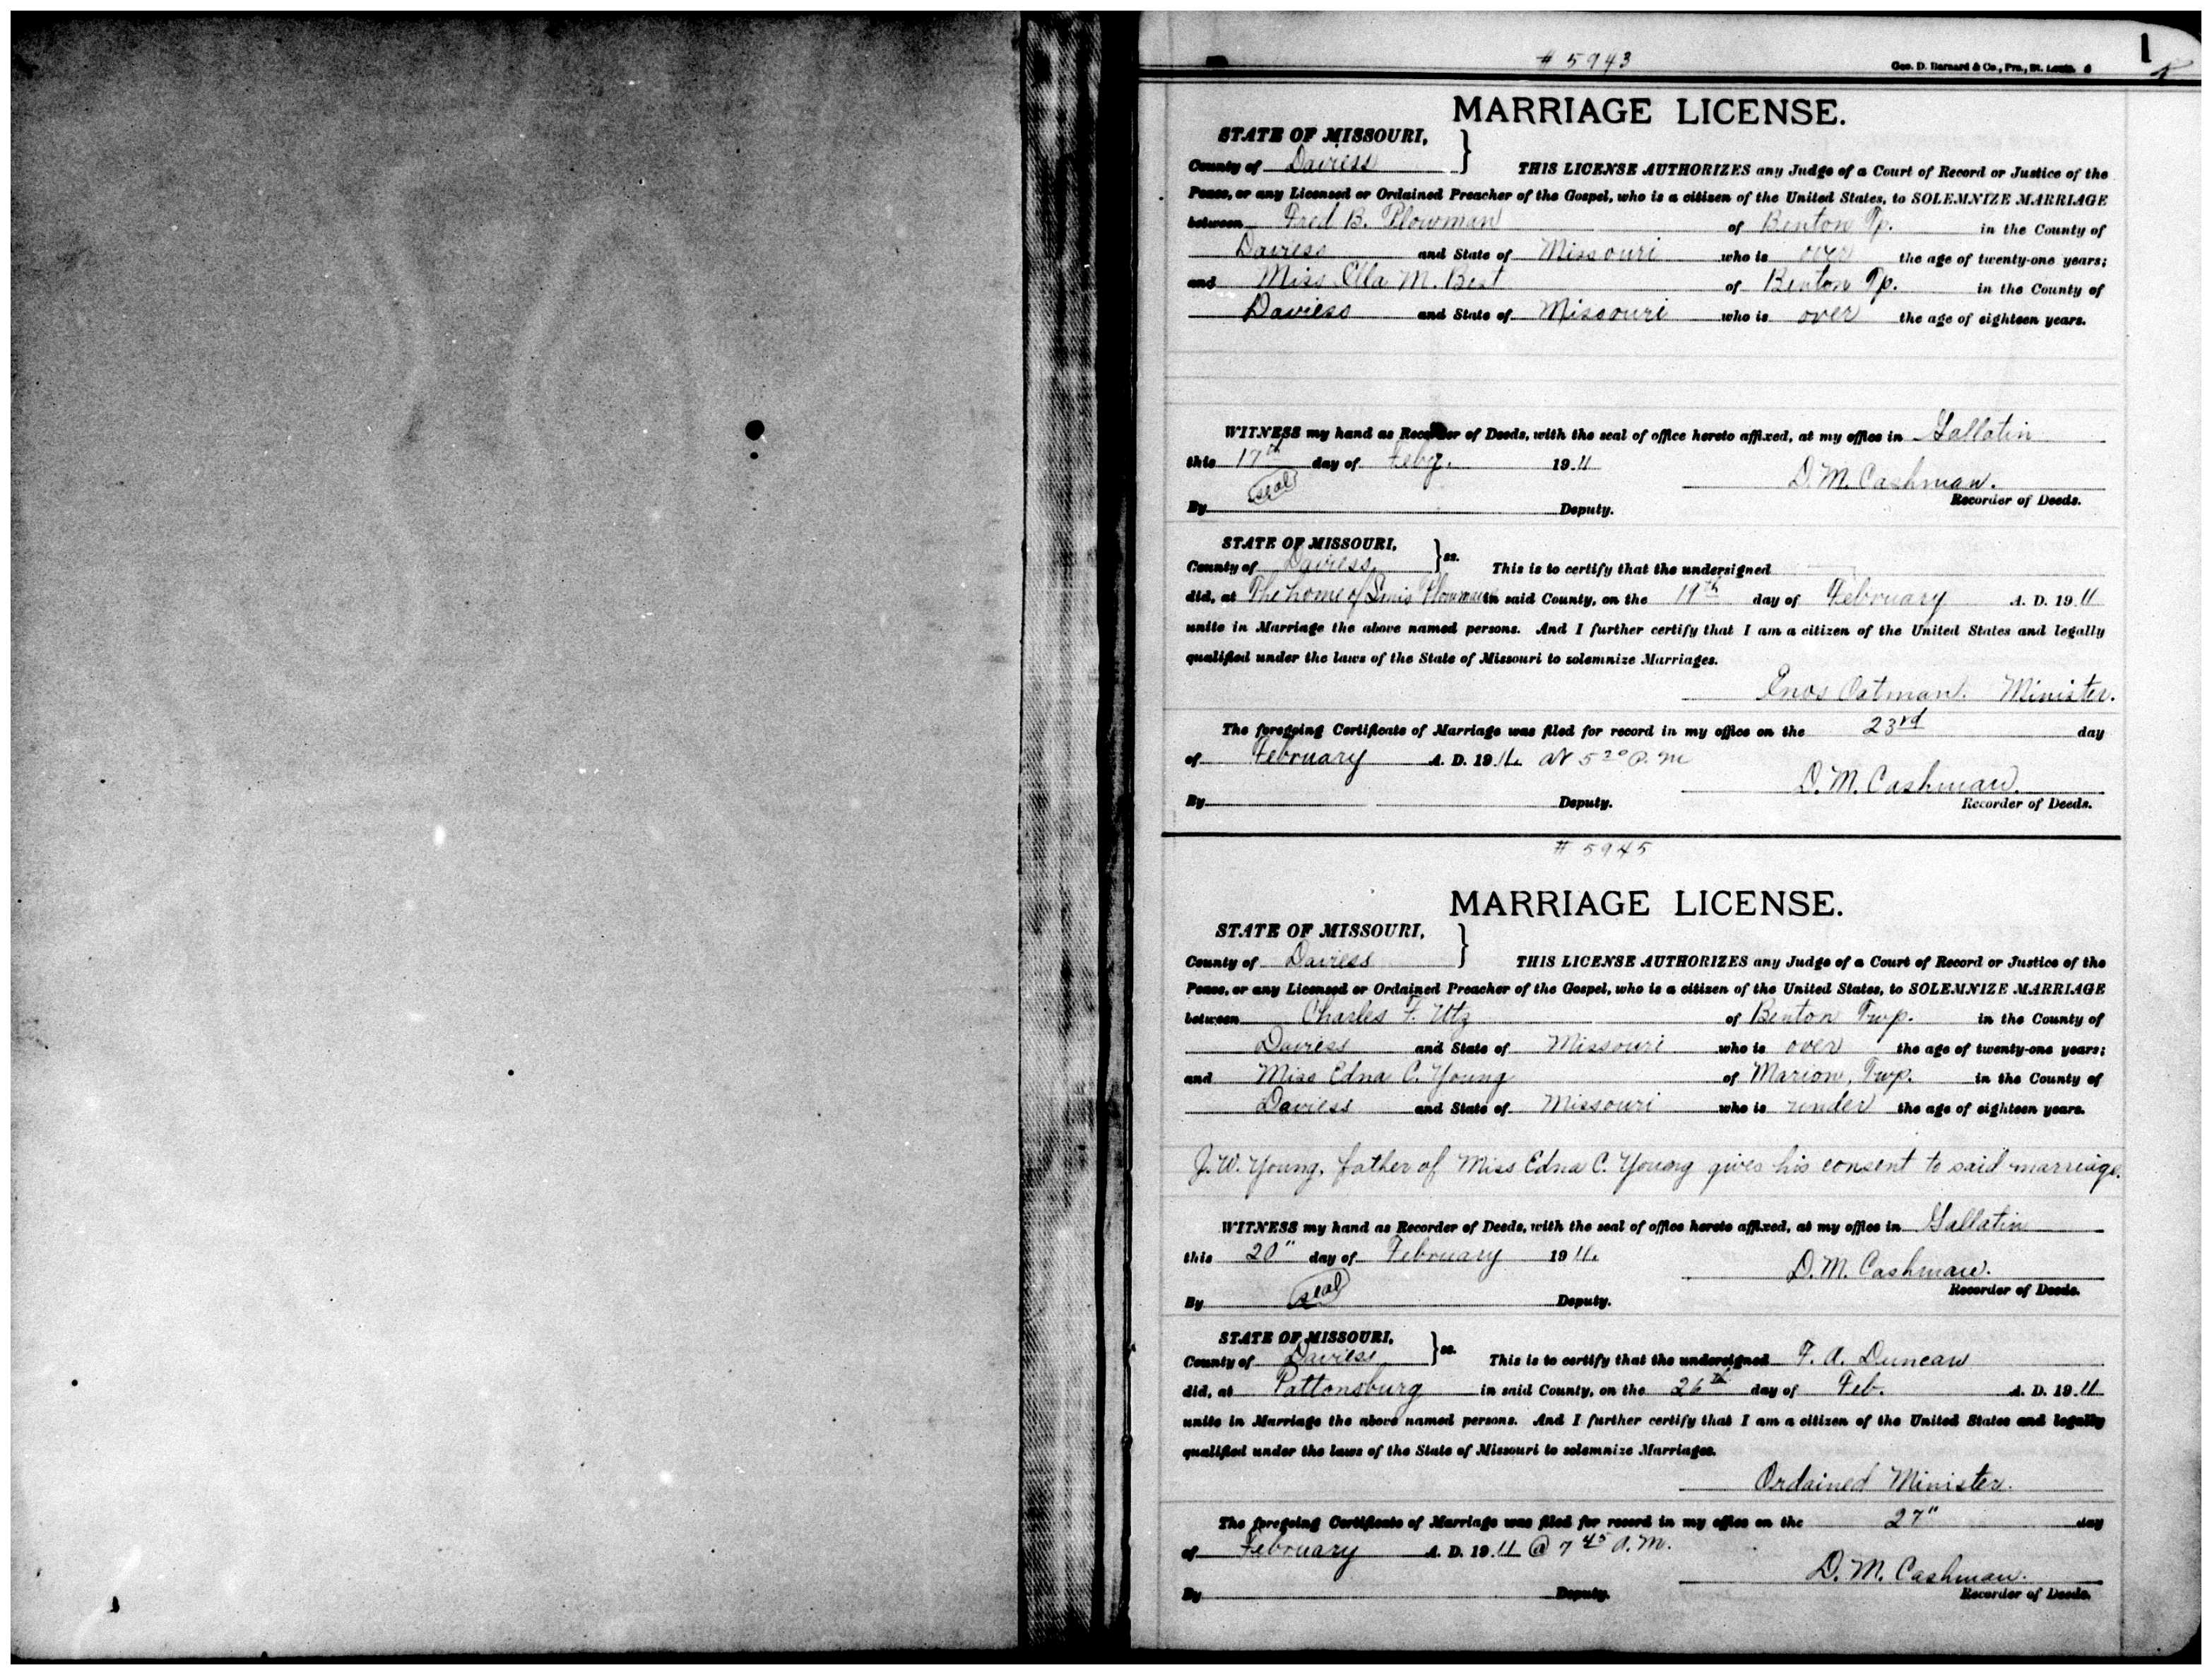 # 5943
Geo. D. Barnard & Co., Pro., St. Louis. 1
MARRIAGE LICENSE.
STATE OF MISSOURI,
County of Daviess } THIS LICENSE AUTHORIZES any Judge of a Court of Record or Justice of the
Peace, or any Licensed or Ordained Preacher of the Gospel, who is a citizen of the United States, to SOLEMNIZE MARRIAGE
between Fred B. Plowman of Benton Tp. in the County of
Daviess and State of Missouri who is over the age of twenty-one years;
and Miss Ella M. Best of Benton Tp. in the County of
Daviess and State of Missouri who is over the age of eighteen years.
WITNESS my hand as Recorder of Deeds, with the seal of office hereto affixed, at my office in Gallatin
this 17th day of Feby. 1911
D. M. Cashman.
seal
By Deputy. Recorder of Deeds.
STATE OF MISSOURI,
County of Daviess } ss. This is to certify that the undersigned
did, at The home of Plowman in said County, on the 19th day of February A. D. 1911
unite in Marriage the above named persons. And I further certify that I am a citizen of the United States and legally
qualified under the laws of the State of Missouri to solemnize Marriages.
Enos Oatman. Minister.
The foregoing Certificate of Marriage was filed for record in my office on the 23rd day
of February A. D. 1911. at 5 P. M
D. M. Cashman.
By Deputy. Recorder of Deeds.
# 5945
MARRIAGE LICENSE.
STATE OF MISSOURI,
County of Daviess } THIS LICENSE AUTHORIZES any Judge of a Court of Record or Justice of the
Peace, or any Licensed or Ordained Preacher of the Gospel, who is a citizen of the United States, to SOLEMNIZE MARRIAGE
between Charles F. Utz of Benton Twp. in the County of
Daviess and State of Missouri who is over the age of twenty-one years;
and Miss Edna C. Young of Marion, Twp. in the County of
Daviess and State of Missouri who is under the age of eighteen years.
J. W. Young, father of Miss Edna C. Young gives his consent to said marriage.
WITNESS my hand as Recorder of Deeds, with the seal of office hereto affixed, at my office in Gallatin
this 20" day of February 1911.
D. M. Cashman.
seal
By Deputy. Recorder of Deeds.
STATE OF MISSOURI,
County of Daviess } ss. This is to certify that the undersigned F. A. Duncan
did, at Pattonsburg in said County, on the 26th day of Feb. A. D. 1911
unite in Marriage the above named persons. And I further certify that I am a citizen of the United States and legally
qualified under the laws of the State of Missouri to solemnize Marriages.
Ordained Minister.
The foregoing Certificate of Marriage was filed for record in my office on the 27" day
of February A. D. 1911 @ 7 45 A. M.
D. M. Cashman.
By Deputy. Recorder of Deeds.